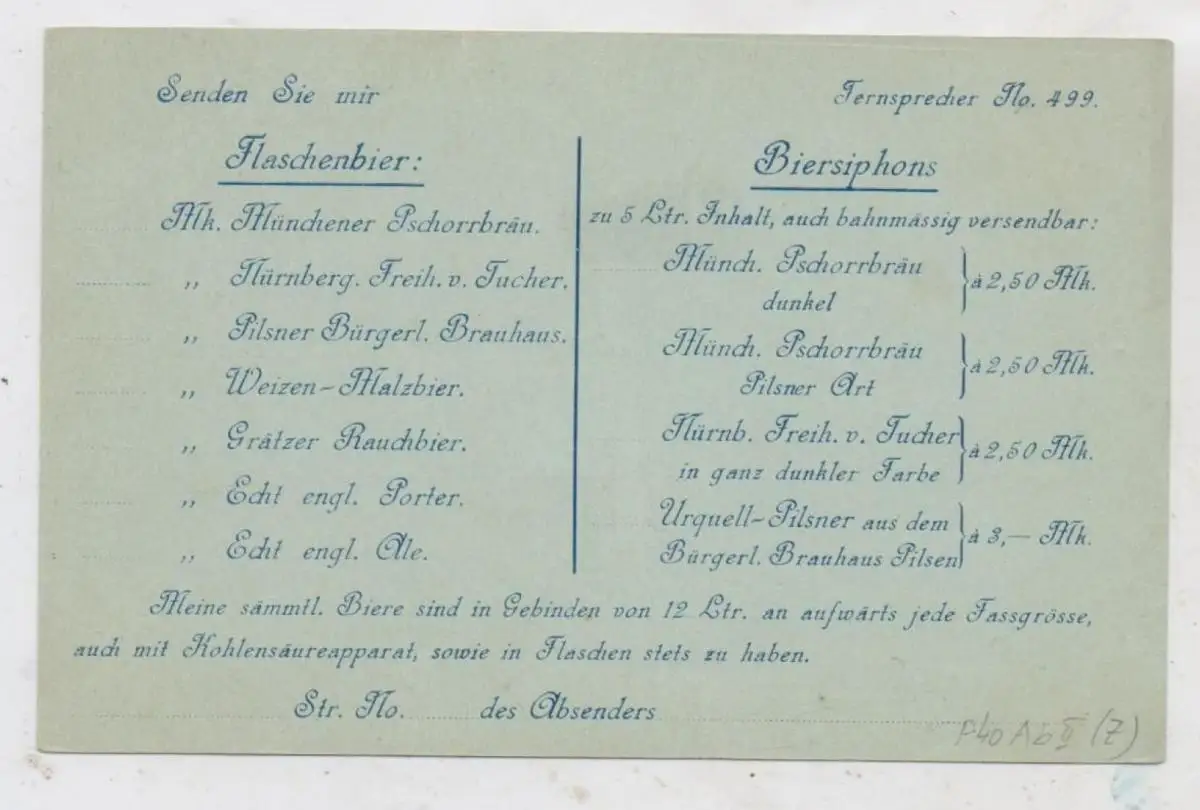 Senden Sie mir
Fernsprecher No. 499.
Flaschenbier:
Mk. Münchener Pschorrbräu.
„ Nürnberg. Freih. v. Tucher.
„ Pilsner Bürgerl. Brauhaus.
„ Weizen-Malzbier.
„ Grätzer Rauchbier.
„ Echt engl. Porter.
„ Echt engl. Ale.
Biersiphons
zu 5 Ltr. Inhalt, auch bahnmässig versendbar:
Münch. Pschorrbräu
dunkel
à 2,50 Mk.
Münch. Pschorrbräu
Pilsner Art
à 2,50 Mk.
Nürnb. Freih. v. Tucher
in ganz dunkler Farbe
à 2,50 Mk.
Urquell-Pilsner aus dem
Bürgerl. Brauhaus Pilsen
à 3,— Mk.
Meine sämmtl. Biere sind in Gebinden von 12 Ltr. an aufwärts jede Fassgrösse,
auch mit Kohlensäureapparat, sowie in Flaschen stets zu haben.
Str. No. des Absenders
(Z)